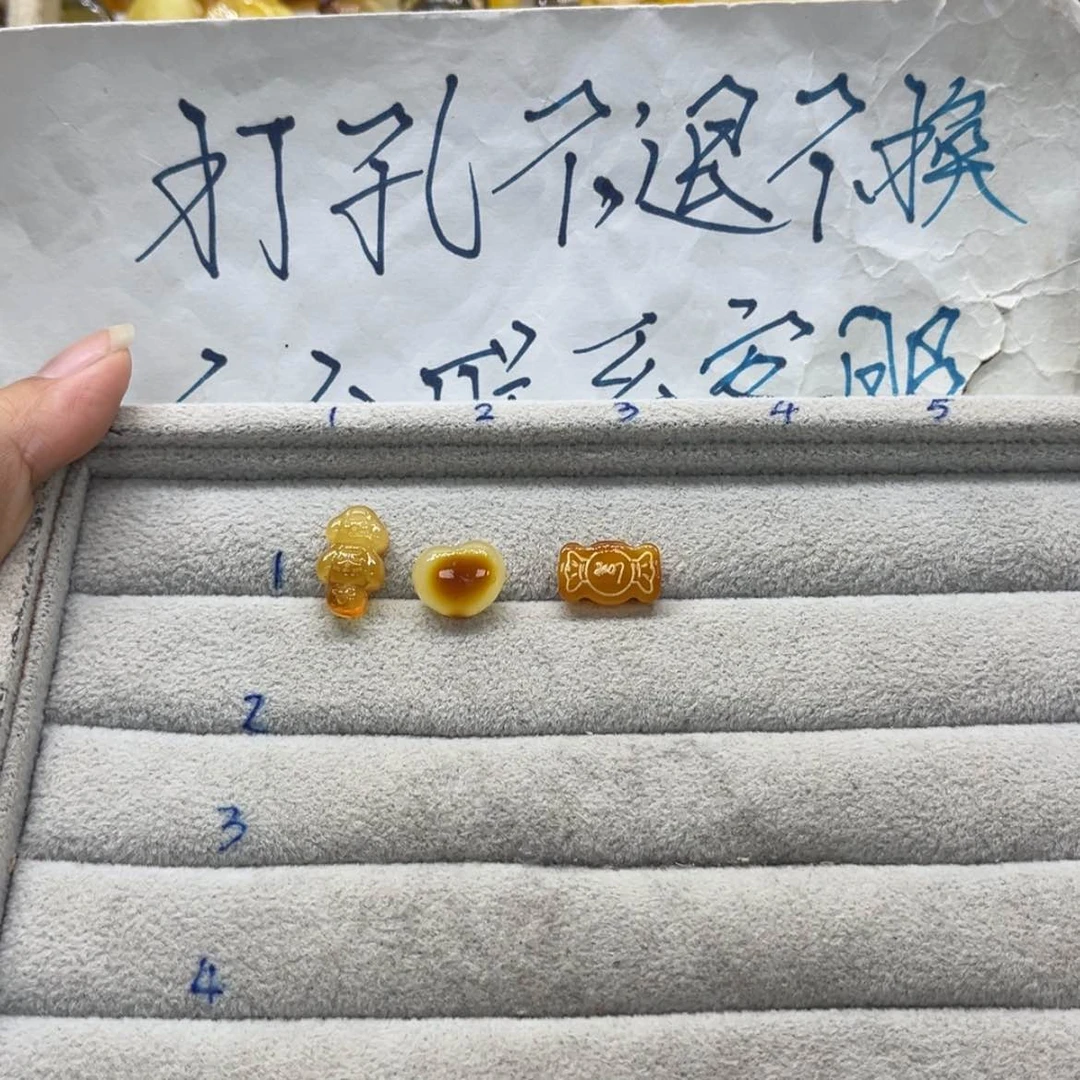 打孔不退不换
1 2 3 4 5
1
Love
2
3
4